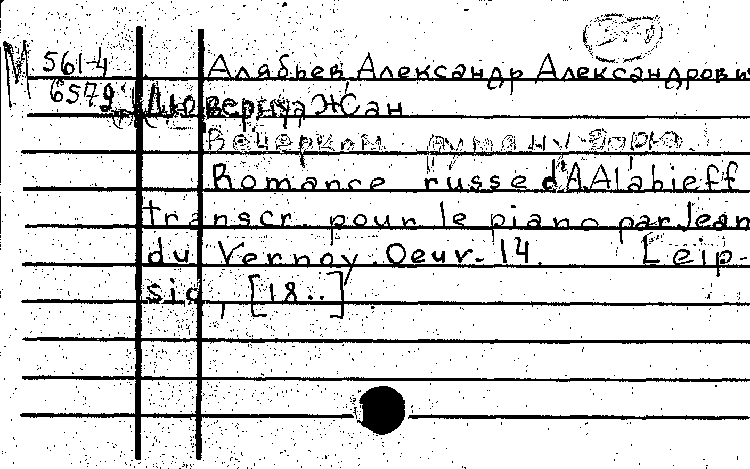 М 561-4 Алябьев, Александр Александрови
6579 Дюверnуа Жан
Вечерком румяну зорю.
Romance russe d'A. Alabieff
transcr. pour le piano par Jean
du Vernoy. Oeuv. 14. Leip-
sic, [18..]